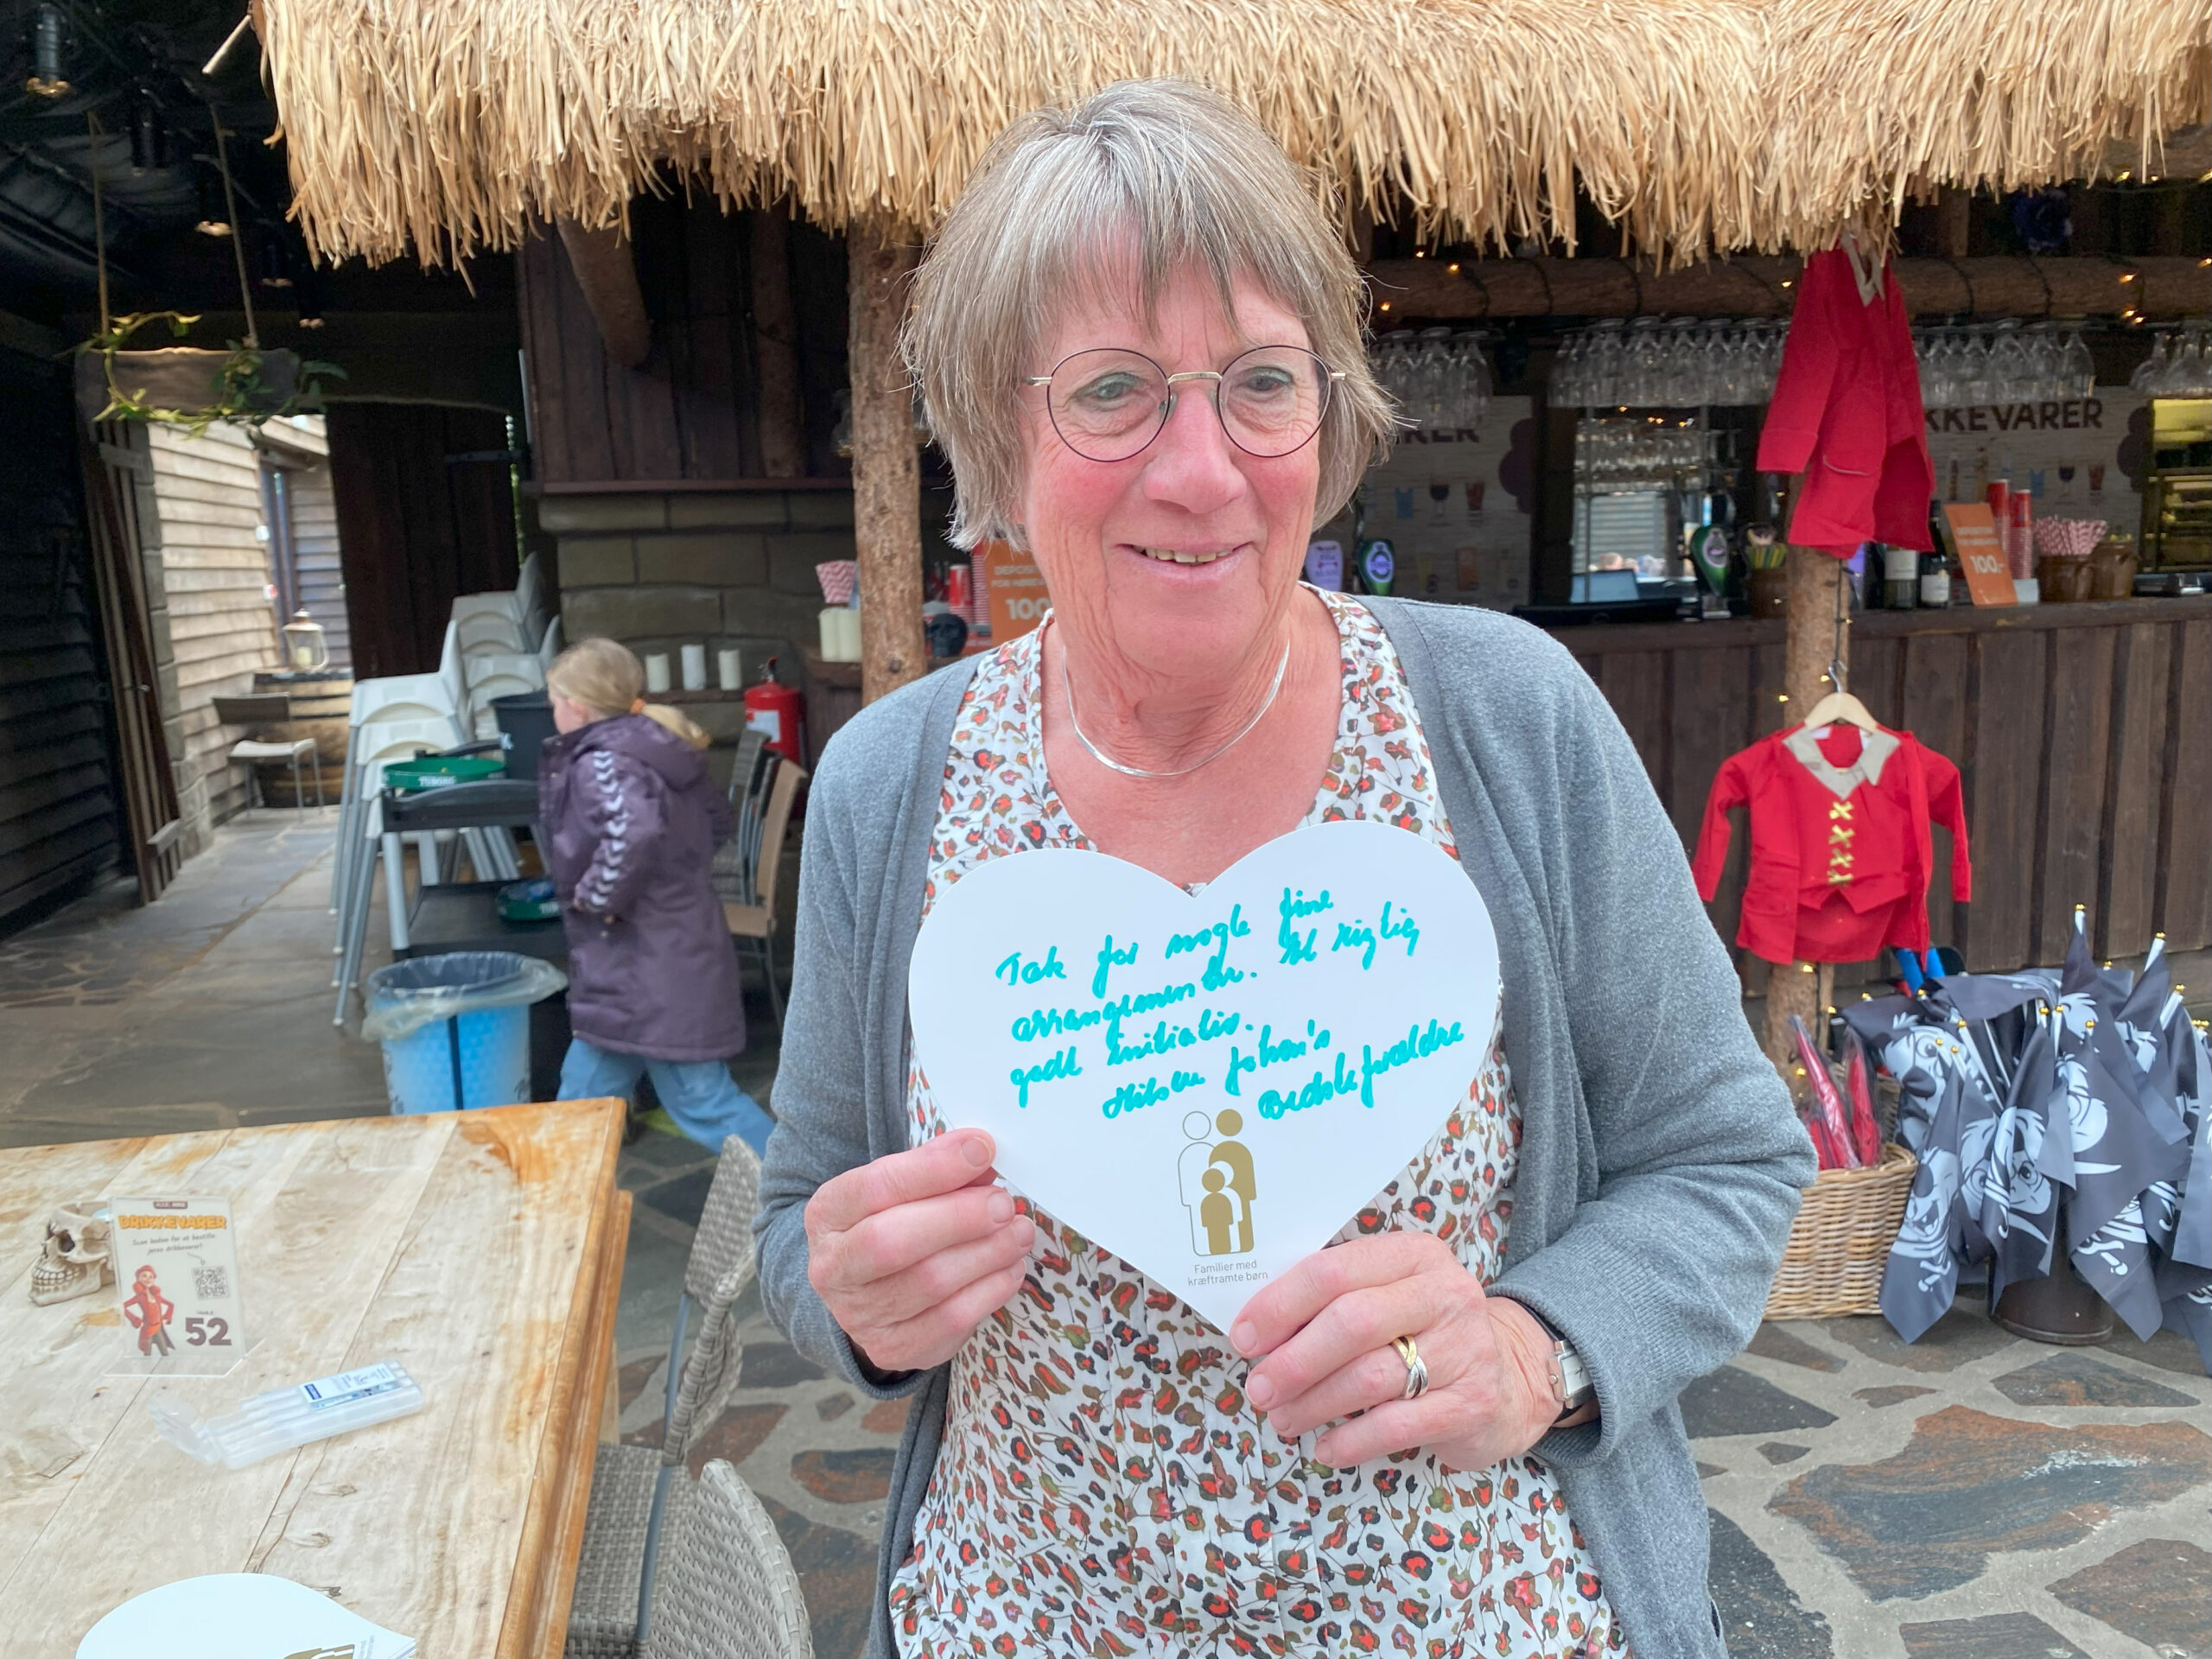 Tak for nogle fine
arrangementer. Et rigtig
godt initiativ.
Hilsen Johan's
Bedsteforældre
Familier med
kræftramte børn
KKEVARER
100,-
100
TUBORG
DRIKKEVARER
Scan koden for at bestille
jeres drikkevarer!
52